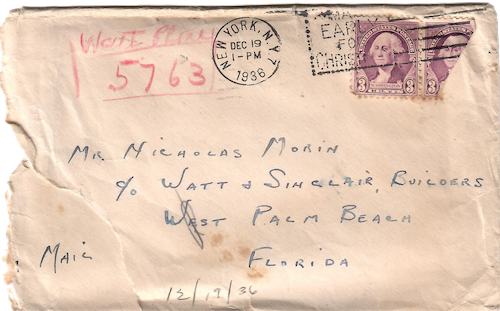 NEW YORK, N.Y.
DEC 19
1-PM
1936
MAIL
EARLY
FOR
CHRISTMAS
3 3
5763
Mr. Nicholas Morin
c/o Watt & Sinclair, Builders
West Palm Beach
Florida
Mail
12/19/36